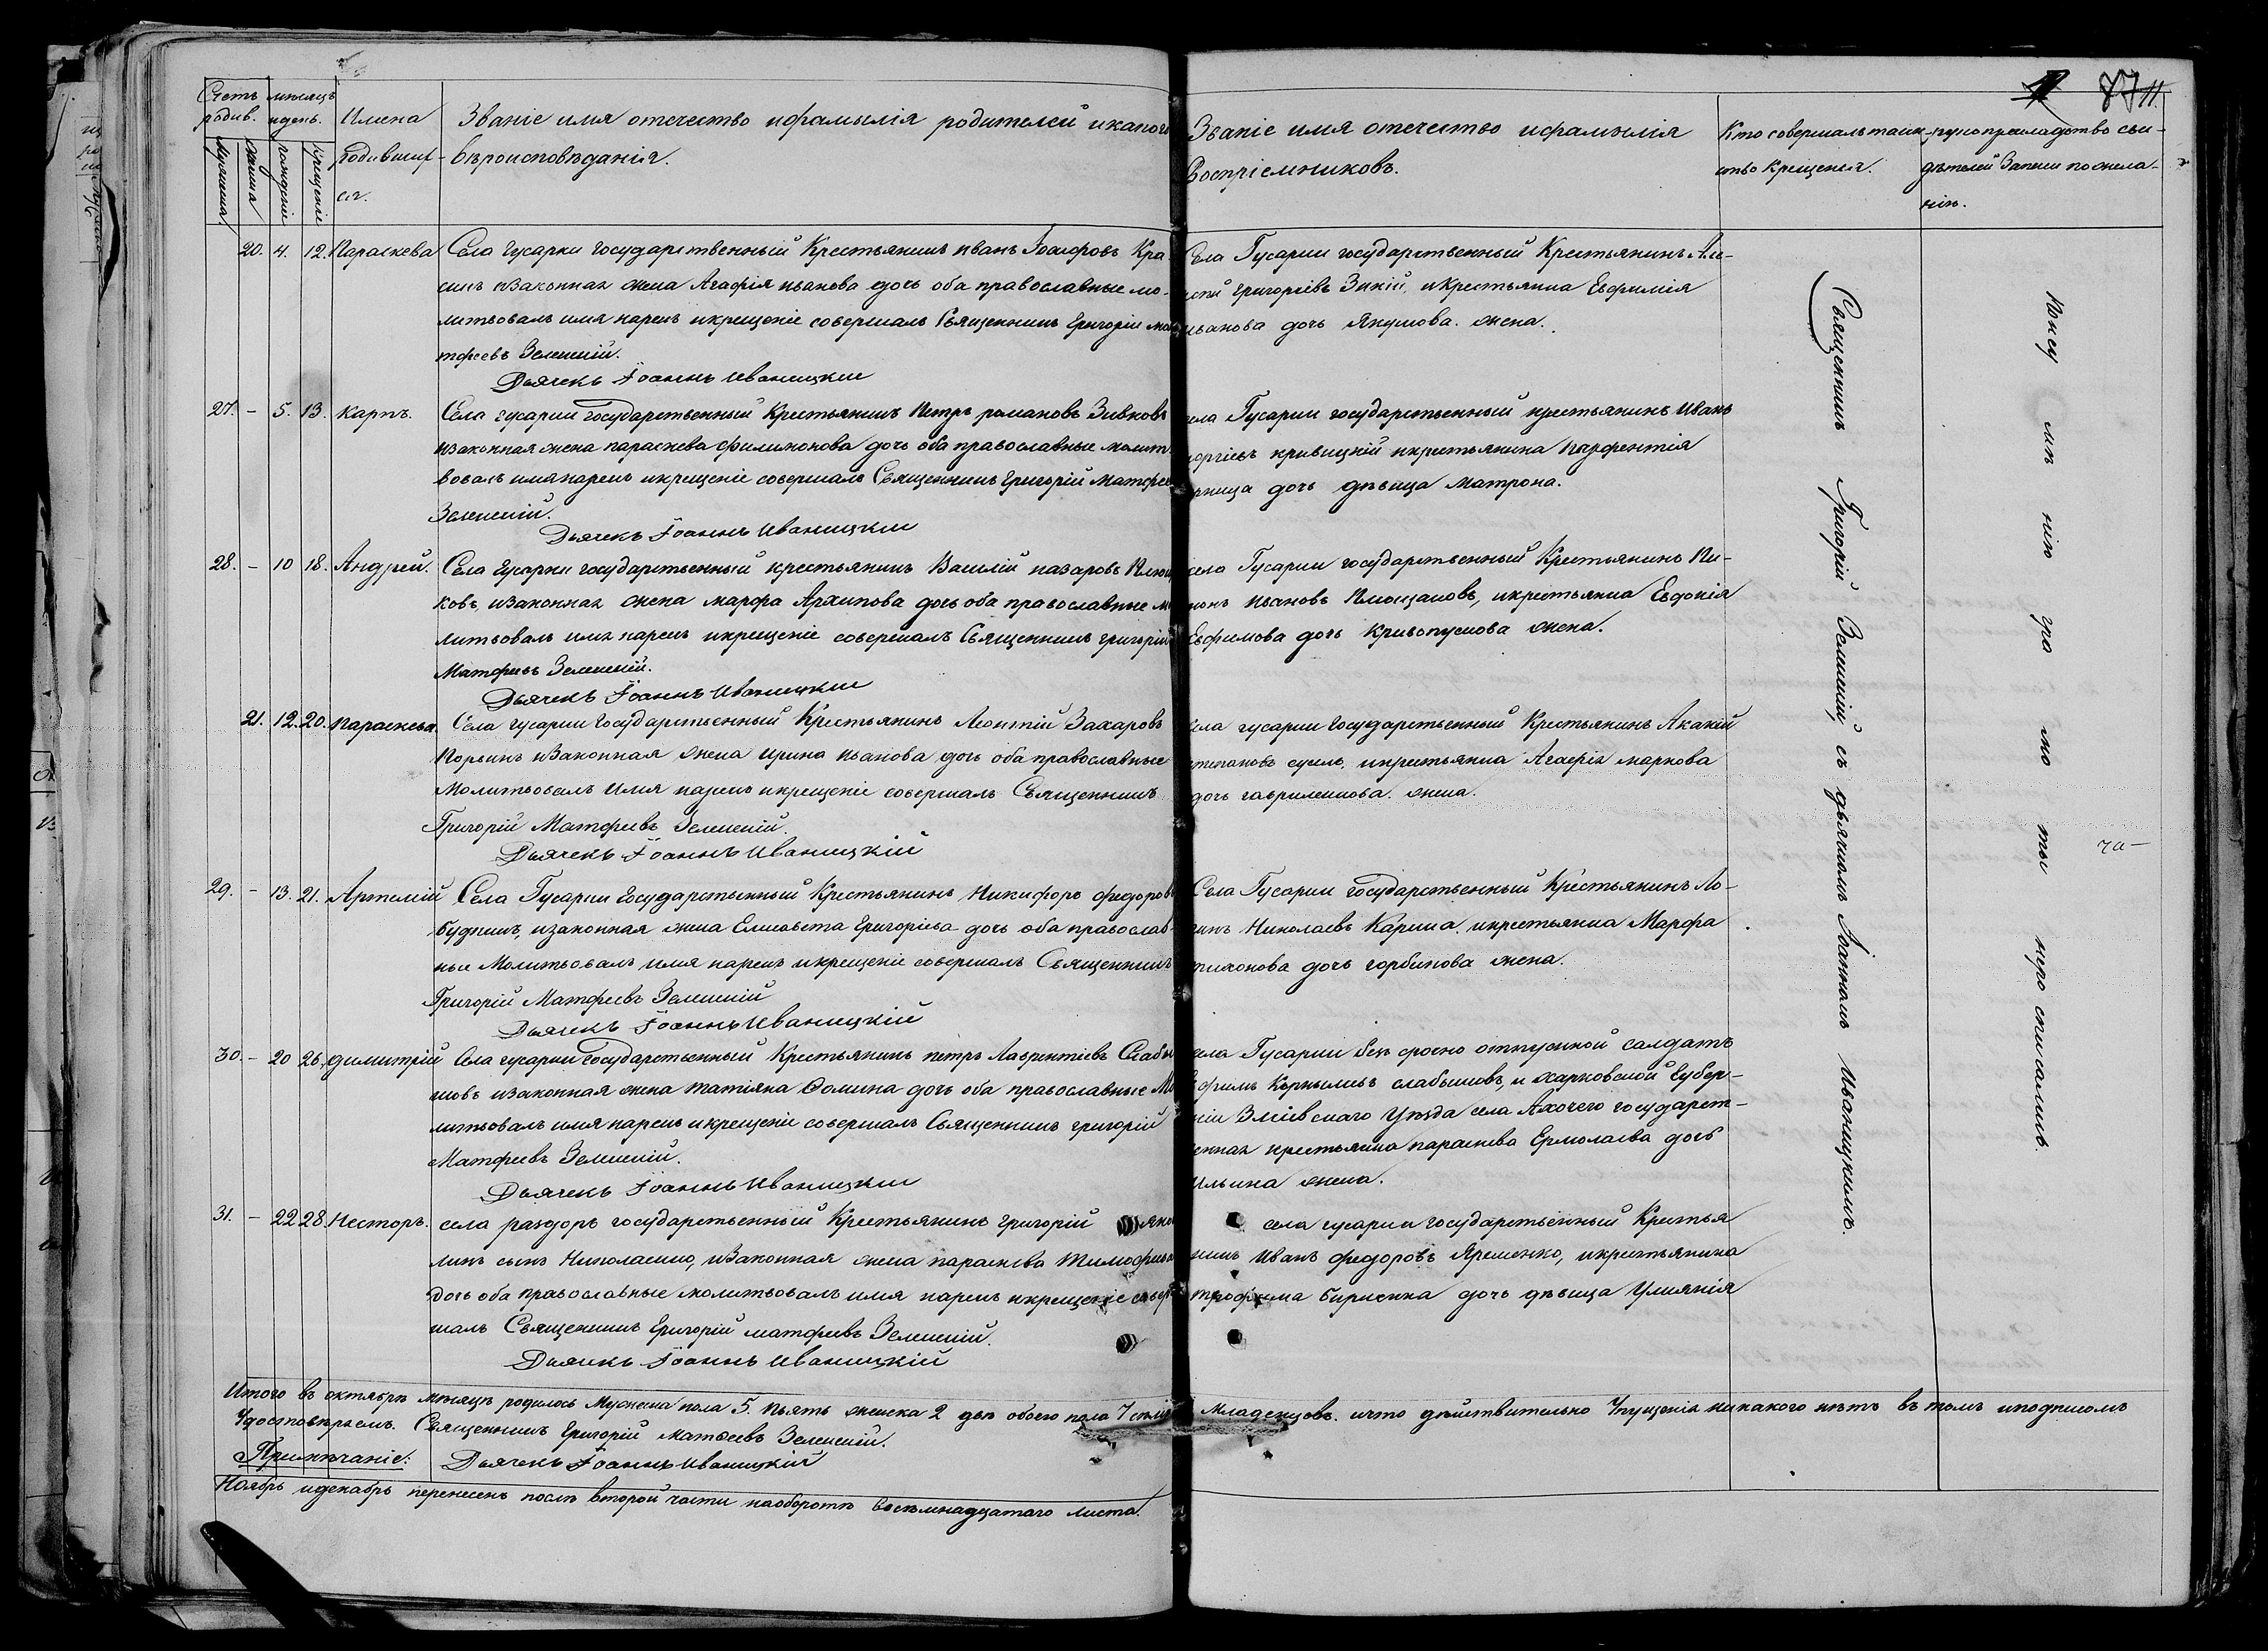 87 11.
Счетъ родив. мѣсяцъ идень. Имена родившихся.
Мужеска женска рожденіе крещеніе
Званіе имя отечество ифамылія родителей икакого
вѣроисповѣданія.
Званіе имя отечество ифамылія
Воспріемниковъ.
Кто совершалъ таин-
ство Крещенія.
рукоприкладство сви-
дѣтелей Записи пожела-
нію.
20. 4. 12. Параскева Села Гусарки государственный Крестьянинъ иванъ Іосифовъ Кра
синъ изаконная жена Агафія иванова дочь оба православные мо-
литвовалъ имя нарекъ икрещеніе совершалъ Священникъ Григорій ма
тфеевъ Зеленскій.
Дьячекъ Іоаннъ Иваницкий
Села Гусарки государственный Крестьянинъ
Григоріевъ икрестьянка Евфимія
иванова дочь Якумова. жена.
27. – 5. 13. Карпъ. Села гусарки Государственный Крестьянинъ Петръ романовъ Зивковъ
изаконная жена параскева филимонова дочь оба православные молит
вовалъ имянарекъ икрещеніе совершалъ Священникъ Григорій Матфее
Зеленскій.
Дьячекъ Іоаннъ Иваницкий
села Гусарки государственный крестьянинъ Иванъ
оргіевъ кривицкій икрестьянина Парфентія
дочь дѣвица Матрона.
28. – 10 18. Андрей. Села Гусарки государственный крестьянинъ Василій назаровъ
ковъ, изаконная жена марфа Архипова дочь оба православные м
литвовалъ имя нарекъ икрещеніе совершалъ Священникъ григорій
Матфеевъ Зеленскій.
Дьячекъ Іоаннъ Иваницкий
села Гусарки государственный Крестьянинъ Ни-
конъ ивановъ икрестьянка Евдокія
Евфимова дочь Кривопускова жена.
21. 12. 20. Параскева. Села гусарки Государственный Крестьянинъ Леонтій Захаровъ
изаконная жена ирина иванова дочь оба православные
Молитвовалъ имя нарекъ икрещеніе совершалъ Священникъ
Григорій Матфеевъ Зеленскій.
Дьячекъ Іоаннъ Иваницкій
села гусарки Государственный Крестьянинъ Акакій
степановъ икрестьянка Агафія маркова
дочь гавриленкова. жена.
29. – 13. 21. Артемій Села Гусарки Государственный Крестьянинъ Никифоръ федоровъ
изаконная жена Елисавета Григоріева дочь оба православ
ные Молитвовалъ имя нарекъ икрещеніе совершалъ Священникъ
Григорій Матфеевъ Зеленскій
Дьячекъ Іоаннъ Иваницкій
Села Гусарки государственный Крестьянинъ Ло-
гинъ Николаевъ икрестьянка Марфа
тихонова дочь горбикова жена.
30. – 20 26. Димитрій Села гусарки Государственный Крестьянинъ петръ Лаврентіевъ Слабы
шовъ изаконная жена татіяна Фомина дочь оба православные Мо
литвовалъ имя нарекъ икрещеніе совершалъ Священникъ григорій
Матфеевъ Зеленскій.
Дьячекъ Іоаннъ Иваницкий
села Гусарки безсрочно отпускной салдатъ
слабышовъ, и харковской Губер-
ніи Зміевскаго Уѣзда села Ахочего государст-
венная крестьянка параскева Ермолаева дочь
Ильина жена.
31. – 22 28. Несторъ. села раздоръ государственный Крестьянинъ григорій
линъ сынъ Николаенко, изаконная жена параскева Тимофѣева
дочь оба православные молитвовалъ имя нарекъ икрещеніе совер
шалъ Священникъ Григорій матфеевъ Зеленскій.
Дьячекъ Іоаннъ Иваницкій
села гусарки государственный Крестья
нинъ Иванъ федоровъ Яременко, икрестьянина
трофима дочь дѣвица Улиянія
Священникъ Григорій Зеленскій, съ дьячкомъ Іоанномъ Иваницкимъ.
Итого въ октябрѣ мѣсяцѣ родилось Мужеска пола 5. пьять женска 2 двѣ обоего пола 7 семь младенцовъ. ичто дѣйствительно Упущенія никакого нѣтъ въ томъ иподписомъ
Удостовѣряемъ. Священникъ Григорій матфеевъ Зеленскій.
Примѣчаніе: Дьячекъ Іоаннъ Иваницкій
Ноябрь идекабрь перенесенъ послѣ второй части наоборотѣ восемнадцатаго листа.